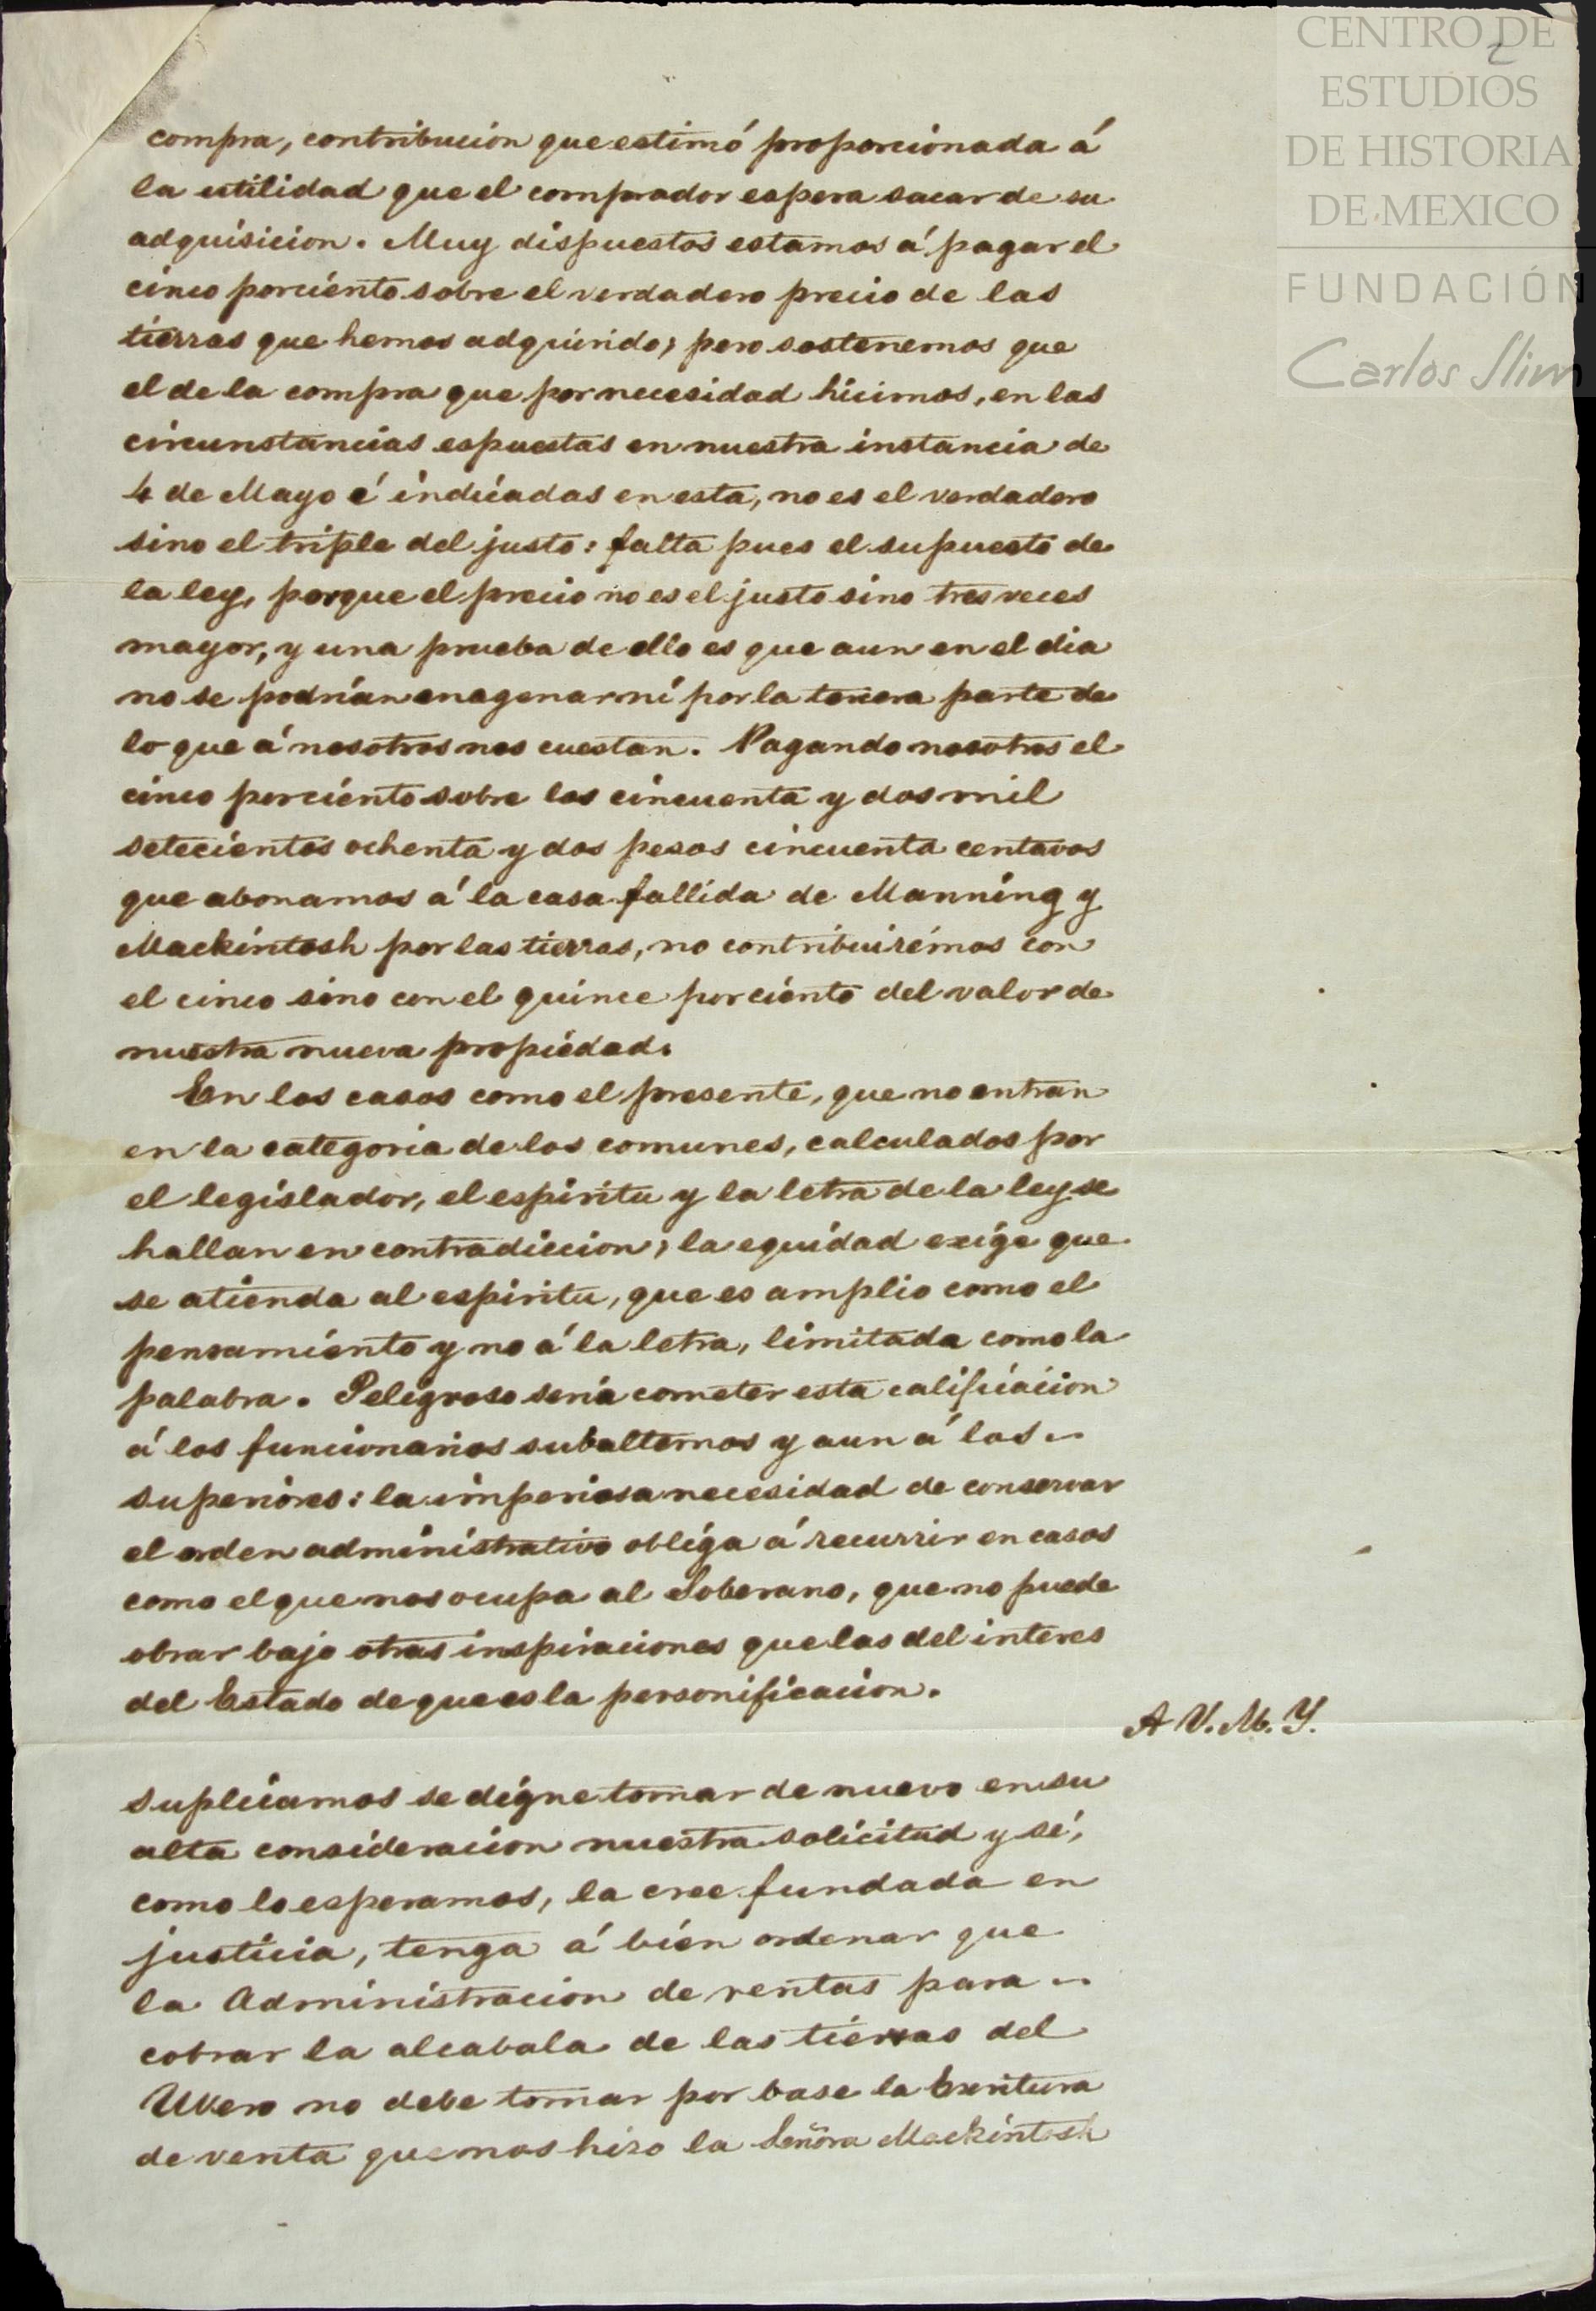 CENTRO DE
ESTUDIOS
DE HISTORIA
DE MEXICO
FUNDACIÓN
Carlos Slim
2
compra, contribucion que estimó proporcionada á
la utilidad que el comprador espera sacar de su
adquisicion. Muy dispuestos estamos á pagar el
cinco porciento sobre el verdadero precio de las
tierras que hemos adquirido; pero sostenemos que
el de la compra que por necesidad hicimos, en las
circunstancias espuestas en nuestra instancia de
4 de Mayo é indicadas en esta, no es el verdadero
sino el triple del justo: falta pues el supuesto de
la ley, porque el precio no es el justo sino tres veces
mayor, y una prueba de ello es que aun en el dia
no se podrian enagenar ni por la tercera parte de
lo que á nosotros nos cuestan. Pagando nosotros el
cinco porciento sobre los cincuenta y dos mil
setecientos ochenta y dos pesos cincuenta centavos
que abonamos á la casa fallida de Manning y
Mackintosh por las tierras, no contribuirémos con
el cinco sino con el quince porciento del valor de
nuestra nueva propiedad.
En los casos como el presente, que no entran
en la categoria de los comunes, calculados por
el legislador, el espiritu y la letra de la ley se
hallan en contradiccion; la equidad exige que
se atienda al espiritu, que es amplio como el
pensamiento y no á la letra, limitada como la
palabra. Peligroso seria cometer esta calificacion
á los funcionarios subalternos y aun á los
superiores: la imperiosa necesidad de conservar
el orden administrativo obliga á recurrir en casos
como el que nos ocupa al Soberano, que no puede
obrar bajo otras inspiraciones que las del interes
del Estado de que es la personificacion.
A V. M. Y.
suplicamos se digne tomar de nuevo en su
alta consideracion nuestra solicitud y si,
como lo esperamos, la cree fundada en
justicia, tenga á bien ordenar que
la Administracion de rentas para
cobrar la alcabala de las tierras del
Uvero no debe tomar por base la Escritura
de venta que nos hizo la Señora Mackintosh